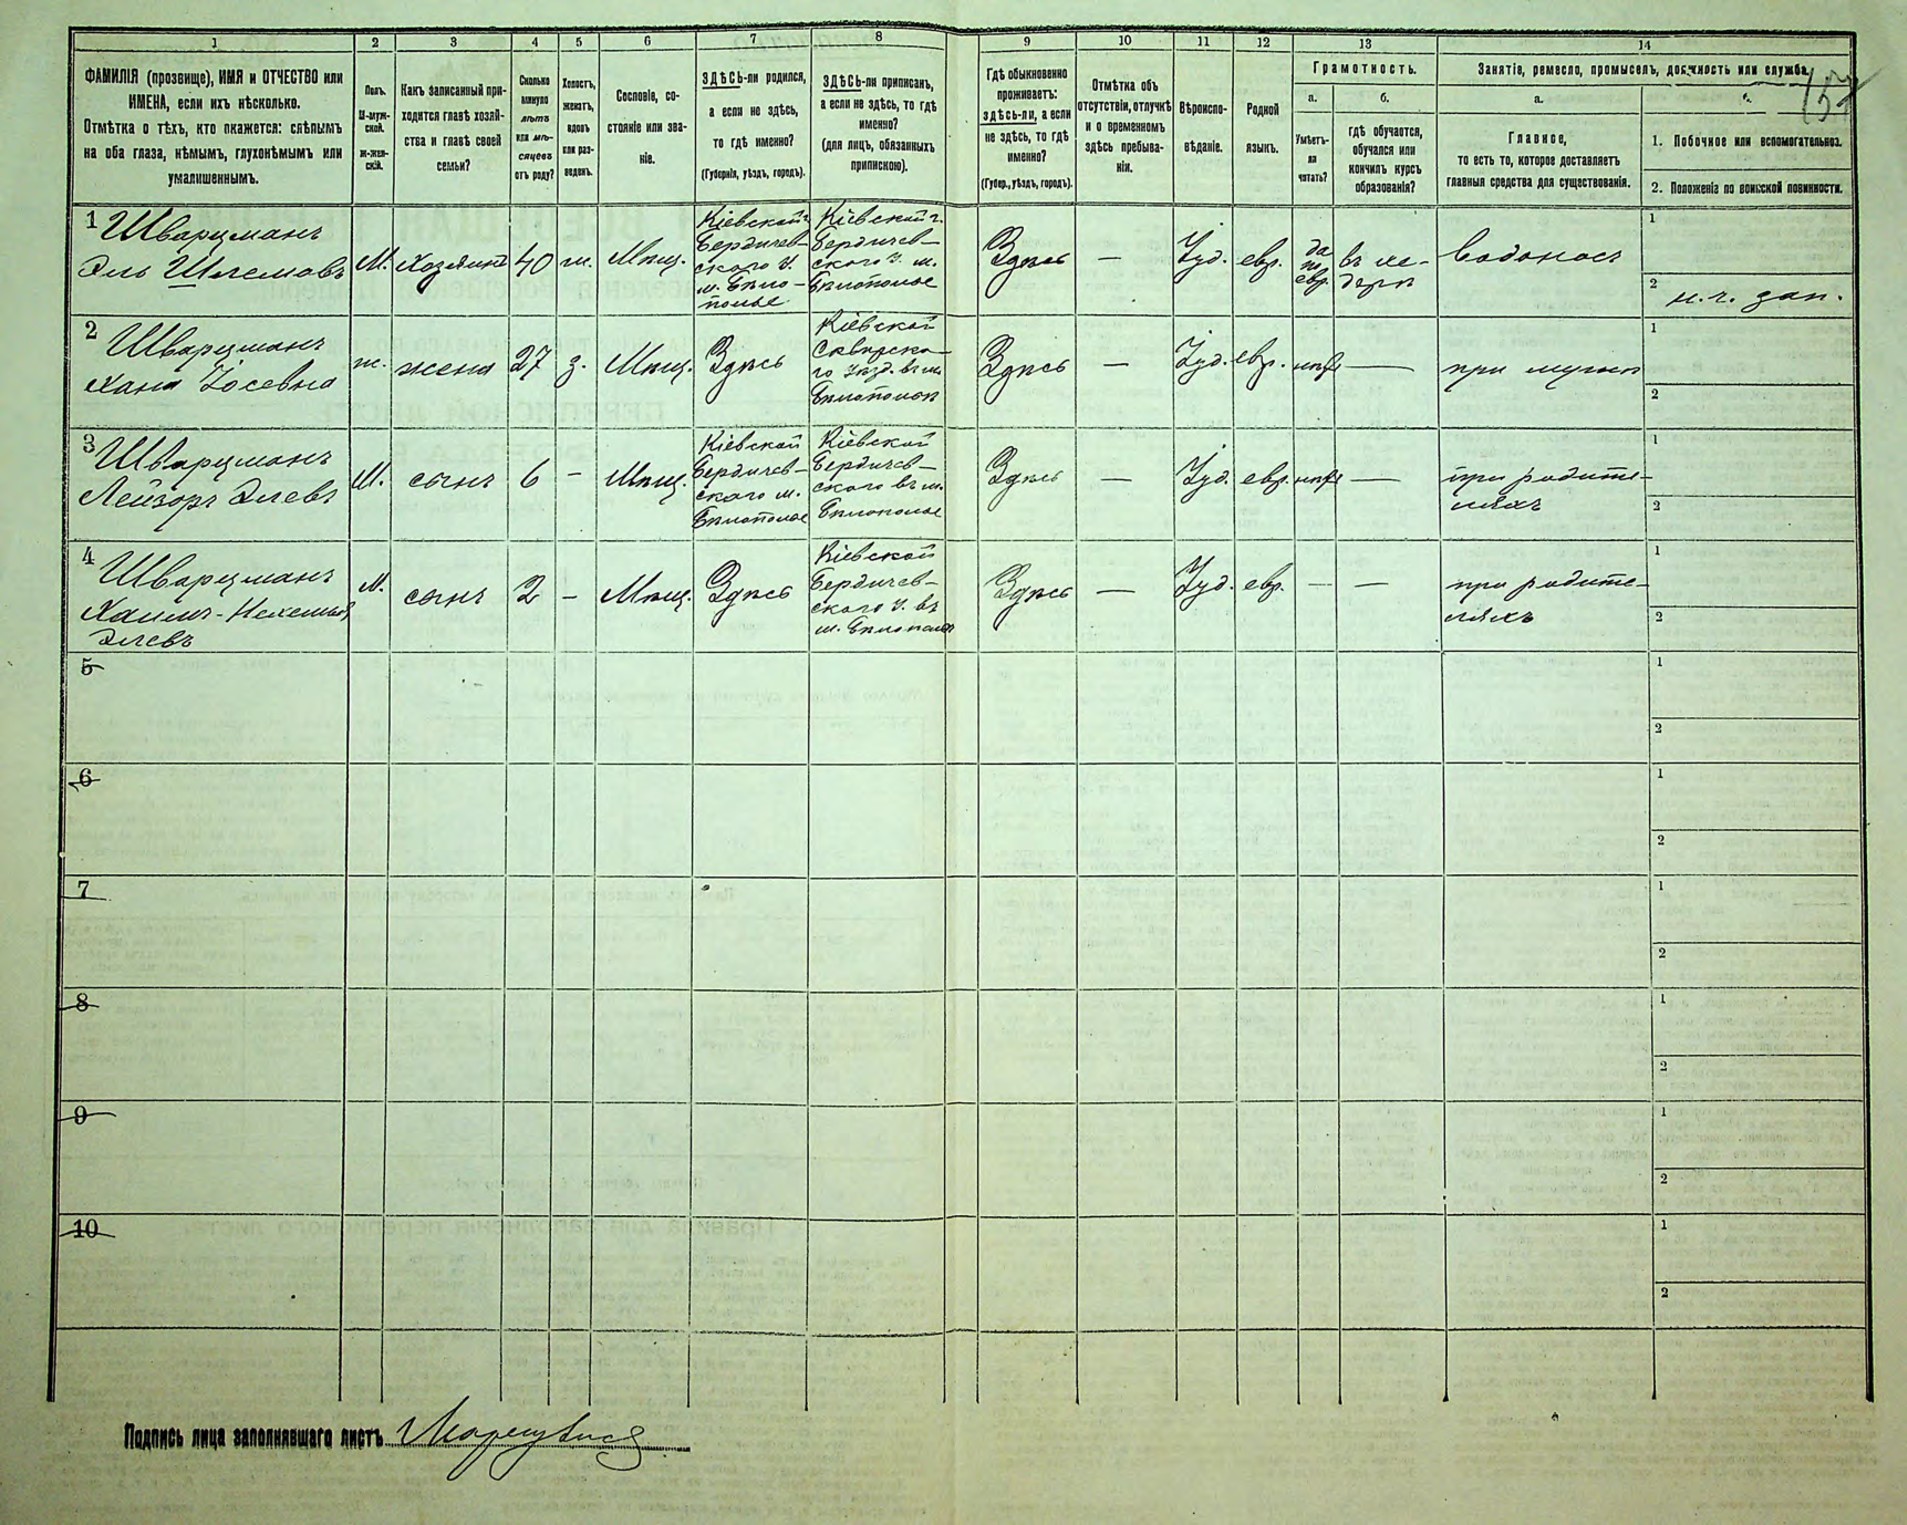 1 2 3 4 5 6 7 8 9 10 11 12 13 14
ФАМИЛІЯ (прозвище), ИМЯ и ОТЧЕСТВО или
ИМЕНА, если ихъ нѣсколько.
Отмѣтка о тѣхъ, кто окажется: слѣпымъ
на оба глаза, нѣмымъ, глухонѣмымъ или
умалишеннымъ.
Полъ.
М-муж-
ской.
Ж-жен-
скій.
Какъ записанный при-
ходится главѣ хозяй-
ства и главѣ своей
семьи?
Сколько
минуло
лѣтъ
или мѣ-
сяцевъ
отъ роду?
Холостъ,
женатъ,
вдовъ
или раз-
веденъ.
Сословіе, со-
стояніе или зва-
ніе.
ЗДѢСЬ-ли родился,
а если не здѣсь,
то гдѣ именно?
(Губернія, уѣздъ, городъ).
ЗДѢСЬ-ли приписанъ,
а если не здѣсь, то гдѣ
именно?
(для лицъ, обязанныхъ
припискою).
Гдѣ обыкновенно
проживаетъ:
здѣсь-ли, а если
не здѣсь, то гдѣ
именно?
(Губер., уѣздъ, городъ).
Отмѣтка объ
отсутствіи, отлучкѣ
и о временномъ
здѣсь пребыва-
ніи.
Вѣроиспо-
вѣданіе.
Родной
языкъ.
Грамотность.
а.
Умѣетъ-
ли
читать?
б.
гдѣ обучается,
обучался или
кончилъ курсъ
образованія?
Занятіе, ремесло, промыселъ, должность или служба.
157
а.
Главное,
то есть то, которое доставляетъ
главныя средства для существованія.
1. Побочное или вспомогательное.
2. Положеніе по воинской повинности.
1 Шварцманъ
Эль Шлемовъ
М.
Хозяинъ
40
ж.
Мѣщ.
Кіевской г.
Бердичев-
ского у.
м. Бѣло-
полье
Кіевской г.
Бердичев-
ского у. м.
Бѣлополье
Здѣсь
—
Іуд.
евр.
да
по
евр.
въ хе-
дерѣ
водоносъ
1
2
2 Шварцманъ
Хана Іосевна
ж.
жена
27
з.
Мѣщ.
Здѣсь
Кіевской
Сквирско-
го уѣзд. въ м.
Бѣлополѣ
Здѣсь
—
Іуд.
евр.
нѣтъ
—
при мужѣ
1
2
3 Шварцманъ
Лейзоръ Элевъ
М.
сынъ
6
-
Мѣщ.
Кіевской
Бердичев-
ского м.
Бѣлополье
Кіевской
Бердичев-
ского въ м.
Бѣлополье
Здѣсь
—
Іуд.
евр.
нѣтъ
—
при родите-
ляхъ
1
2
4 Шварцманъ
Элевъ
М.
сынъ
2
-
Мѣщ.
Здѣсь
Кіевской
Бердичев-
ского у. въ
м. Бѣлополье
Здѣсь
—
Іуд.
евр.
—
—
при родите-
ляхъ
1
2
5
1
2
6
1
2
7
1
2
8
1
2
9
1
2
10
1
2
Подпись лица заполнявшаго листъ